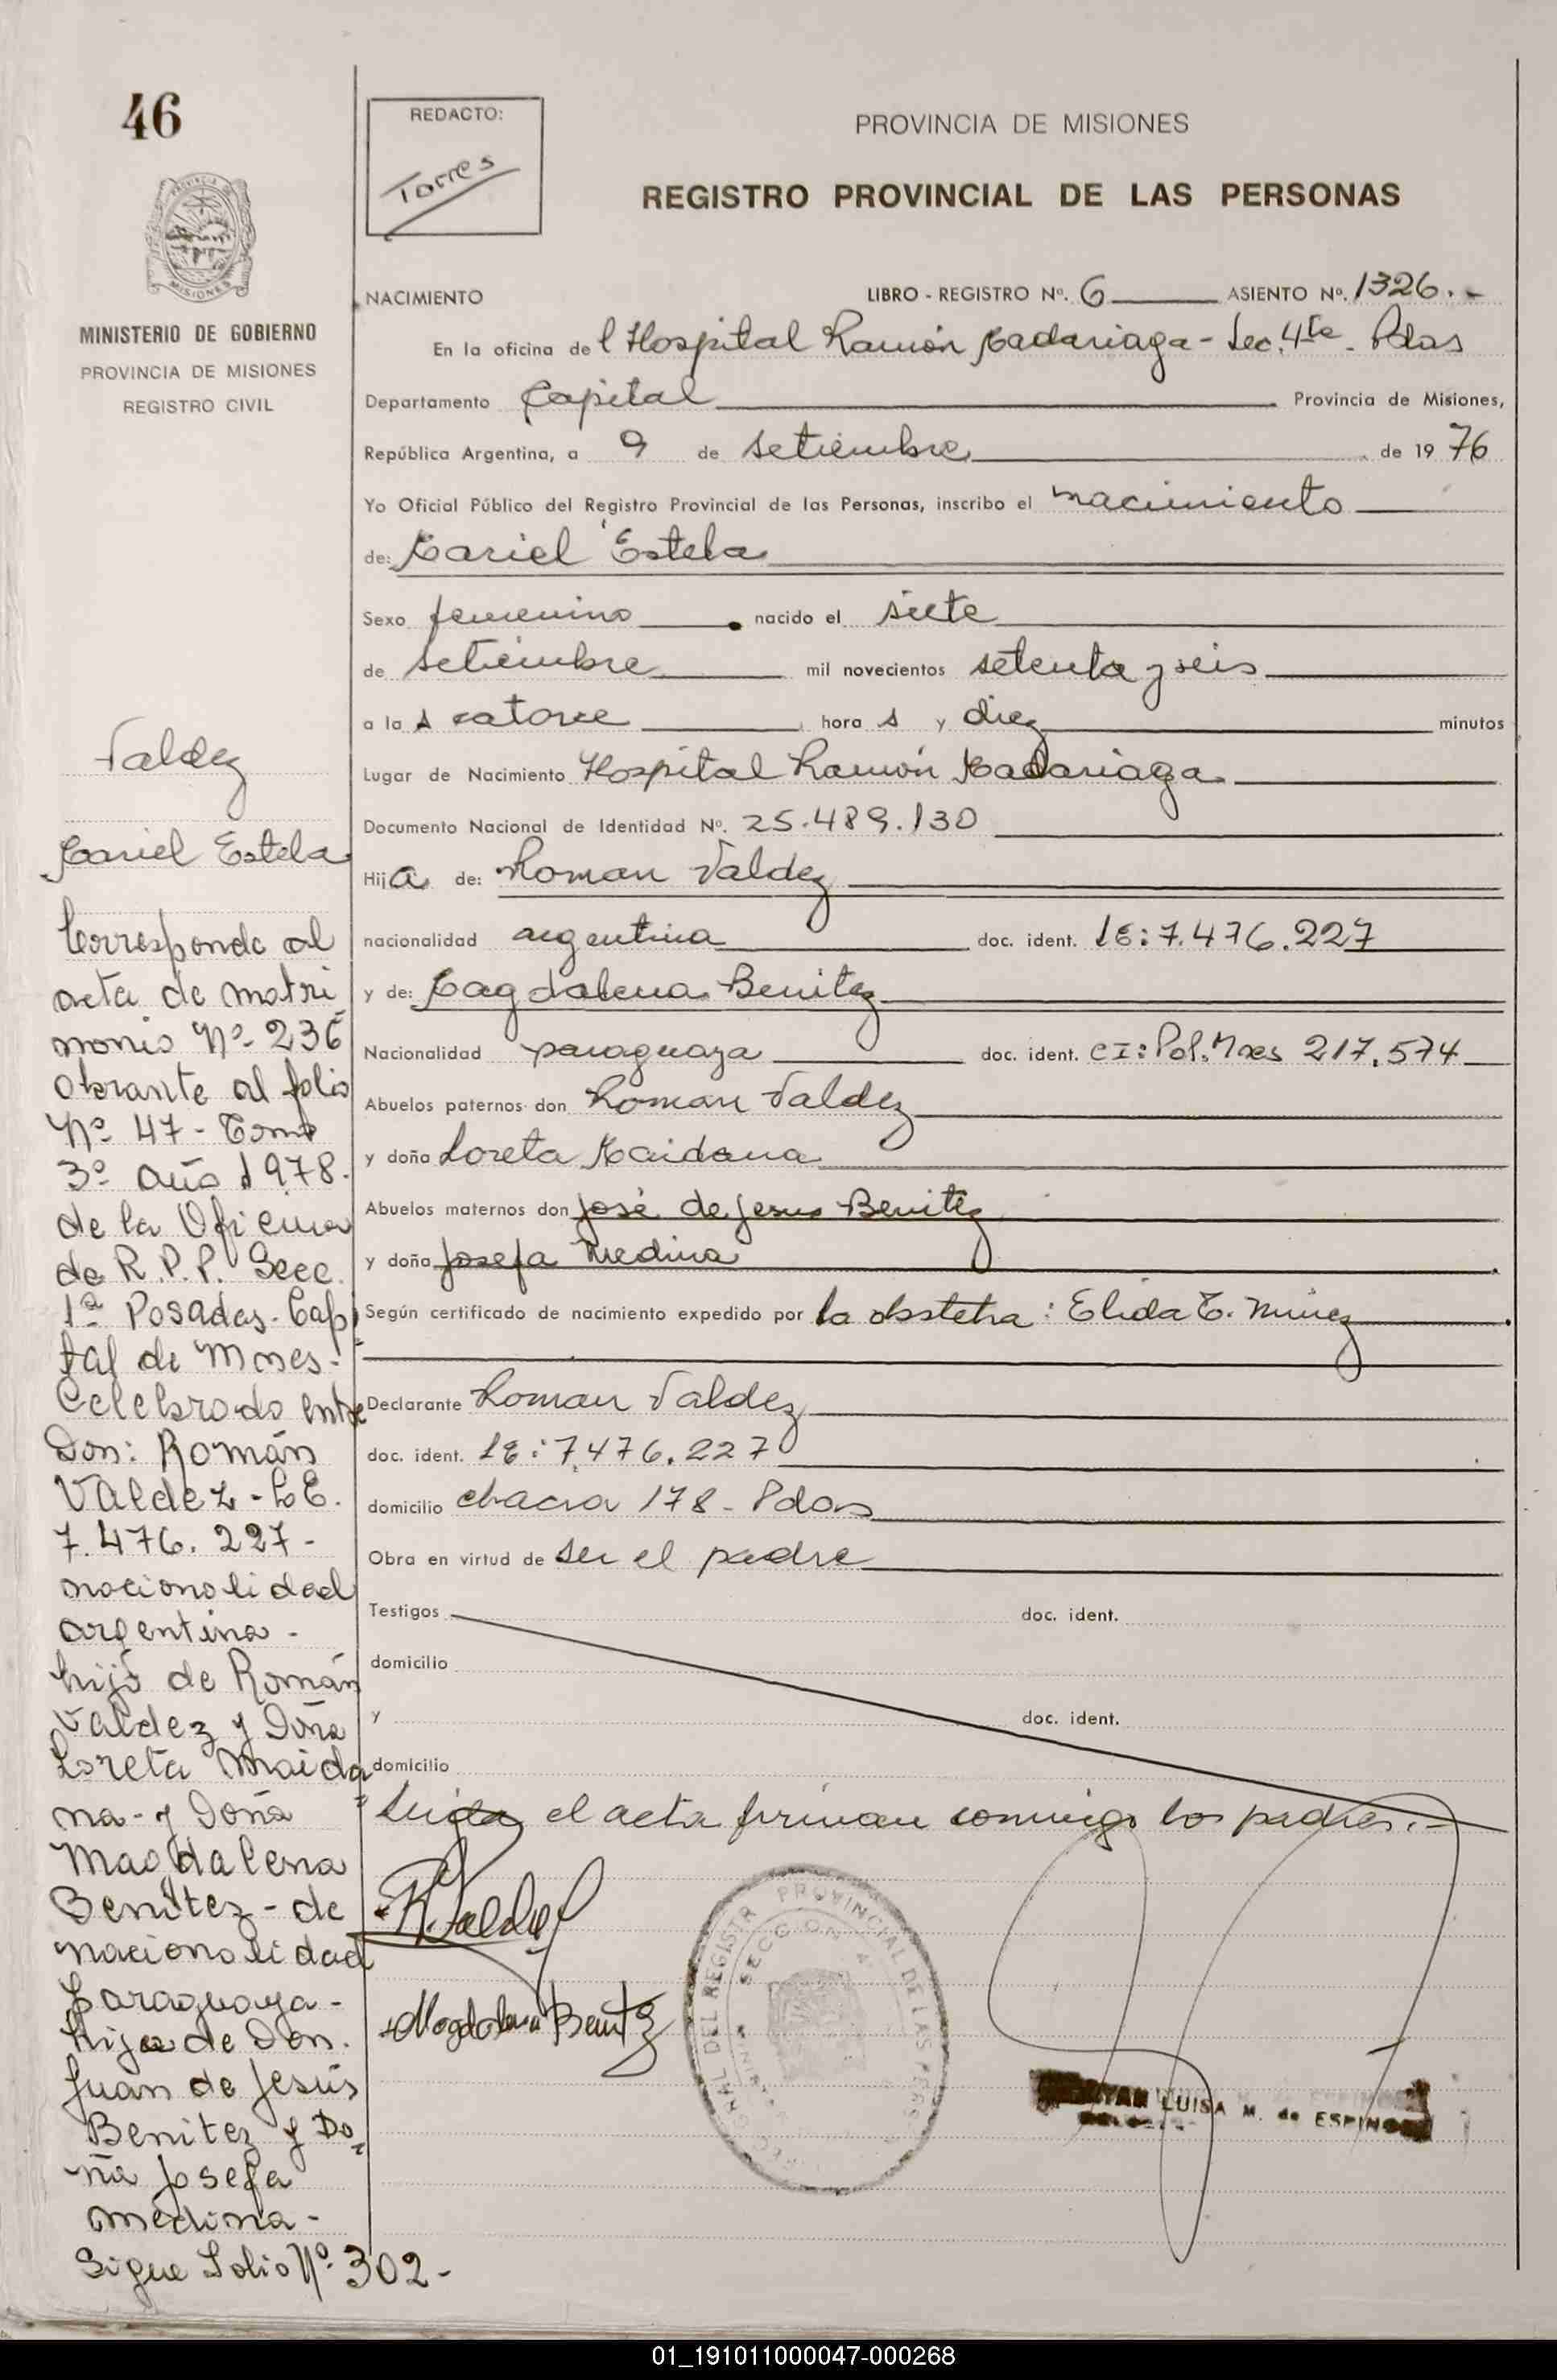 46
REDACTO:
Torres
PROVINCIA DE MISIONES
REGISTRO PROVINCIAL DE LAS PERSONAS
MISIONES
MINISTERIO DE GOBIERNO
PROVINCIA DE MISIONES
REGISTRO CIVIL
NACIMIENTO LIBRO - REGISTRO Nº. 6 ASIENTO Nº. 1326.-
En la oficina del Hospital Ramón Madariaga - Sec. 4ta - Pdas
Departamento Capital Provincia de Misiones,
República Argentina, a 9 de setiembre de 1976
Yo Oficial Público del Registro Provincial de las Personas, inscribo el nacimiento
de: Mariel Estela
Sexo femenino nacido el siete
de setiembre mil novecientos setenta y seis
a las catorce horas y diez minutos
Lugar de Nacimiento Hospital Ramón Madariaga
Documento Nacional de Identidad Nº. 25.489.130
Hija de: Roman Valdez
nacionalidad argentina doc. ident. LE: 7.476.227
y de: Magdalena Benitez
Nacionalidad paraguaya doc. ident. CI: Pol. Mnes 217.574
Abuelos paternos don Roman Valdez
y doña Loreta Maidana
Abuelos maternos don José de Jesus Benitez
y doña Josefa Medina
Según certificado de nacimiento expedido por la obstetra: Elida E.
Declarante Roman Valdez
doc. ident. LE: 7.476.227
domicilio chacra 178 - Pdas
Obra en virtud de ser el padre
Testigos doc. ident.
domicilio
y doc. ident.
domicilio
Leida el acta firman conmigo los padres.-
R. Valdez
Magdalena Benitez
PROVINCIAL DE LAS
SECCION 4
LUISA M. de ESPINO
Valdez
Mariel Estela
Corresponde al
acta de matri
monio Nº 236
obrante al folio
Nº 47 - Tomo
3º año 1978.
de la Oficina
de R.P.P. Secc.
1ª Posadas - Capi
tal de Mnes -
Celebrado entre
Don: Román
Valdez - L.E.
7.476.227 -
nacionalidad
argentina -
hijo de Román
Valdez y Doña
Loreta Maida
na - y Doña
Magdalena
Benitez - de
nacionalidad
Paraguaya -
hija de Don.
Juan de Jesús
Benitez y Do
ña Josefa
Medina -
Sigue Folio Nº 302 -
01_191011000047-000268